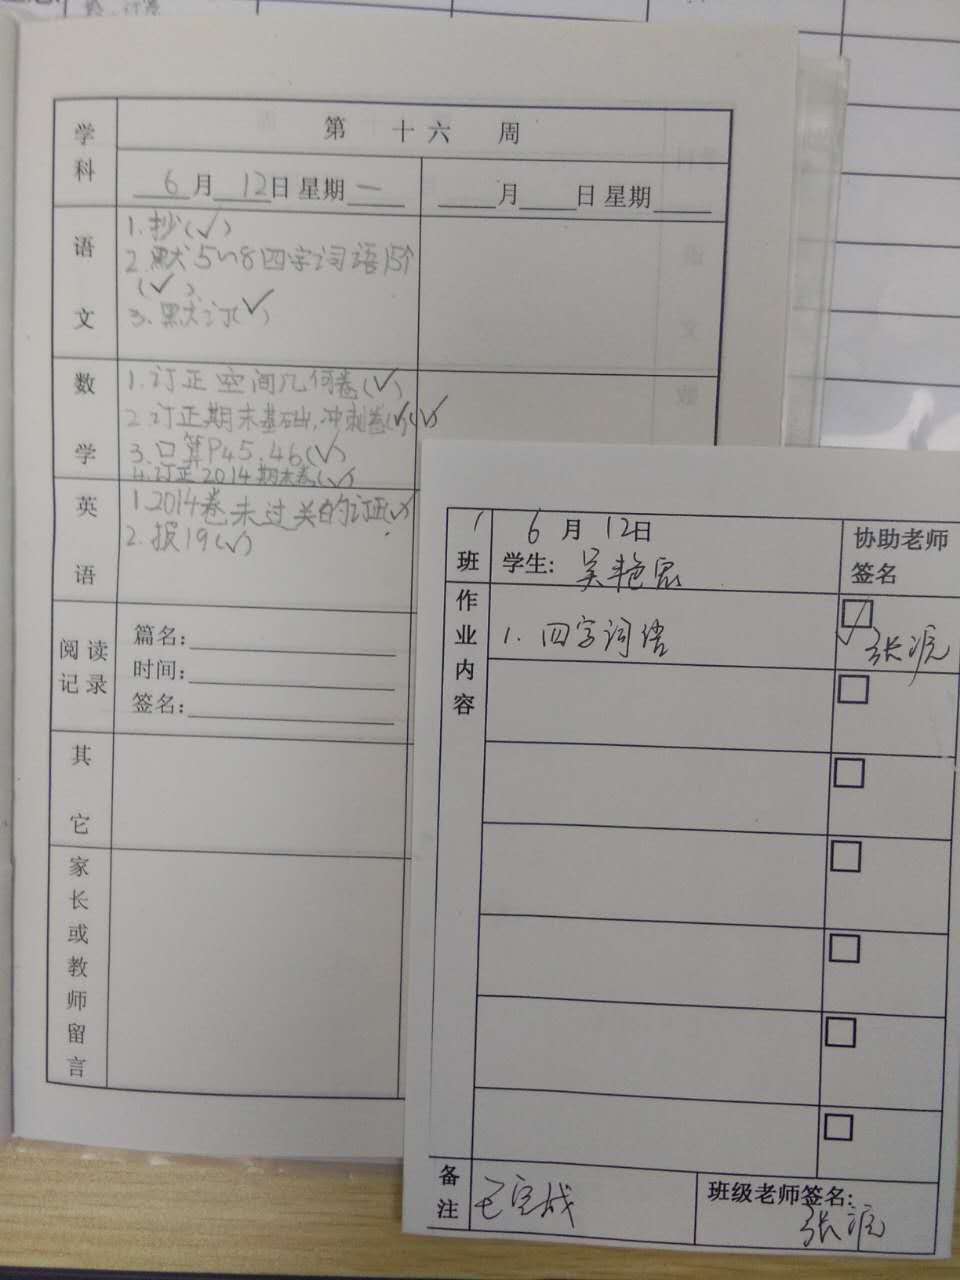 学科
第 十六 周
6月12日 星期一
月 日 星期
语文
1.抄(√)
2.默5~8四字词语15个
(√)
3.默订(√)
数学
1.订正空间几何卷(√)
2.订正期末基础,冲刺卷(√)(√)
3.口算P45.46(√)
4.订正2014期末卷(√)
英语
1.2014卷未过关的订正(√)
2.报19(√)
阅读记录
篇名:
时间:
签名:
其它
家长或教师留言
1班
6月12日
学生: 吴艳
协助老师
签名
作业内容
1. 四字词语
张
备注
已完成
班级老师签名:
张